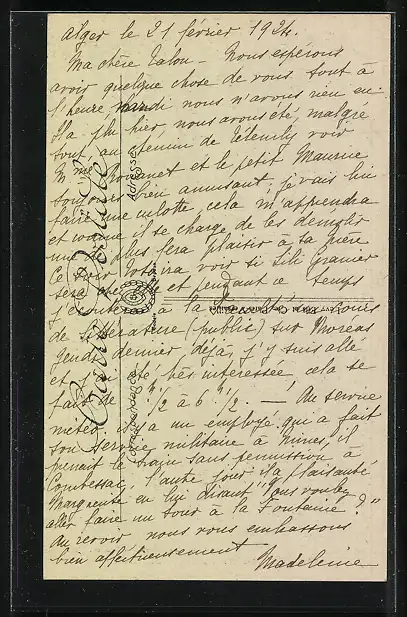 Alger le 21 février 1924.
Ma chère Valou - Nous espérons
avoir quelque chose de vous tout à
l'heure, mardi nous n'avons rien eu.
Il a plu hier, nous avons été, malgré
tout, au chemin de Télemly voir
Mme et le petit Maurice
toujours bien amusant, je vais lui
faire une culotte, cela m'apprendra
et comme il se charge de les démolir
une de plus fera plaisir à sa mère
Ce soir ira voir si Lili Granier
sera et pendant ce temps
j'écouterai à la un cours
de littérature (public) sur Moréas
jeudi dernier, déjà, j'y suis allé
et été très intéressée cela se
fait de 1/2 à 6 1/2. - Au service
météo il y a un employé qui a fait
son service militaire à Nîmes, il
prenait le train sans permission à
l'autre jour il a plaisanté
Marguerite en lui disant "Vous voulez
aller faire un tour à la Fontaine ?"
Au revoir nous vous embrassons
bien affectueusement
Madeleine
Carte Postale
Correspondance
Adresse